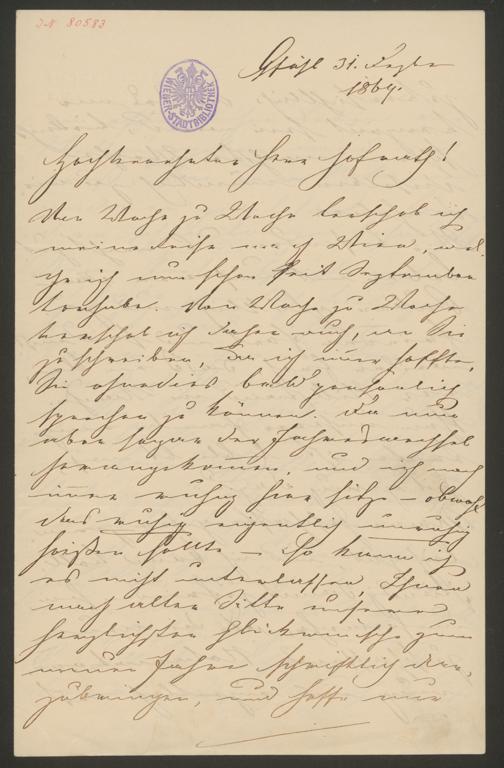 JN 80583
WIENER STADTBIBLIOTHEK
Gföhl 31. Dezbr
1864.
Hochverehrter Herr Hofrath!
Von Woche zu Woche verschob ich
meine Reise nach Wien, wel-
che ich nun schon seit September
vorhabe. Von Woche zu Woche
verschob ich daher auch, an Sie
zu schreiben, da ich immer hoffte,
Sie ohnedies bald persönlich
sprechen zu können. Da nun
aber sogar der Jahreswechsel
herangekommen, und ich noch
immer ruhig hier sitze – obwohl
das ruhig eigentlich unruhig
heißen sollte – so kann ich
es nicht unterlassen, Ihnen
nach alter Sitte unsere
herzlichsten Glückwünsche zum
neuen Jahre schriftlich dar-
zubringen, und hoffe nur